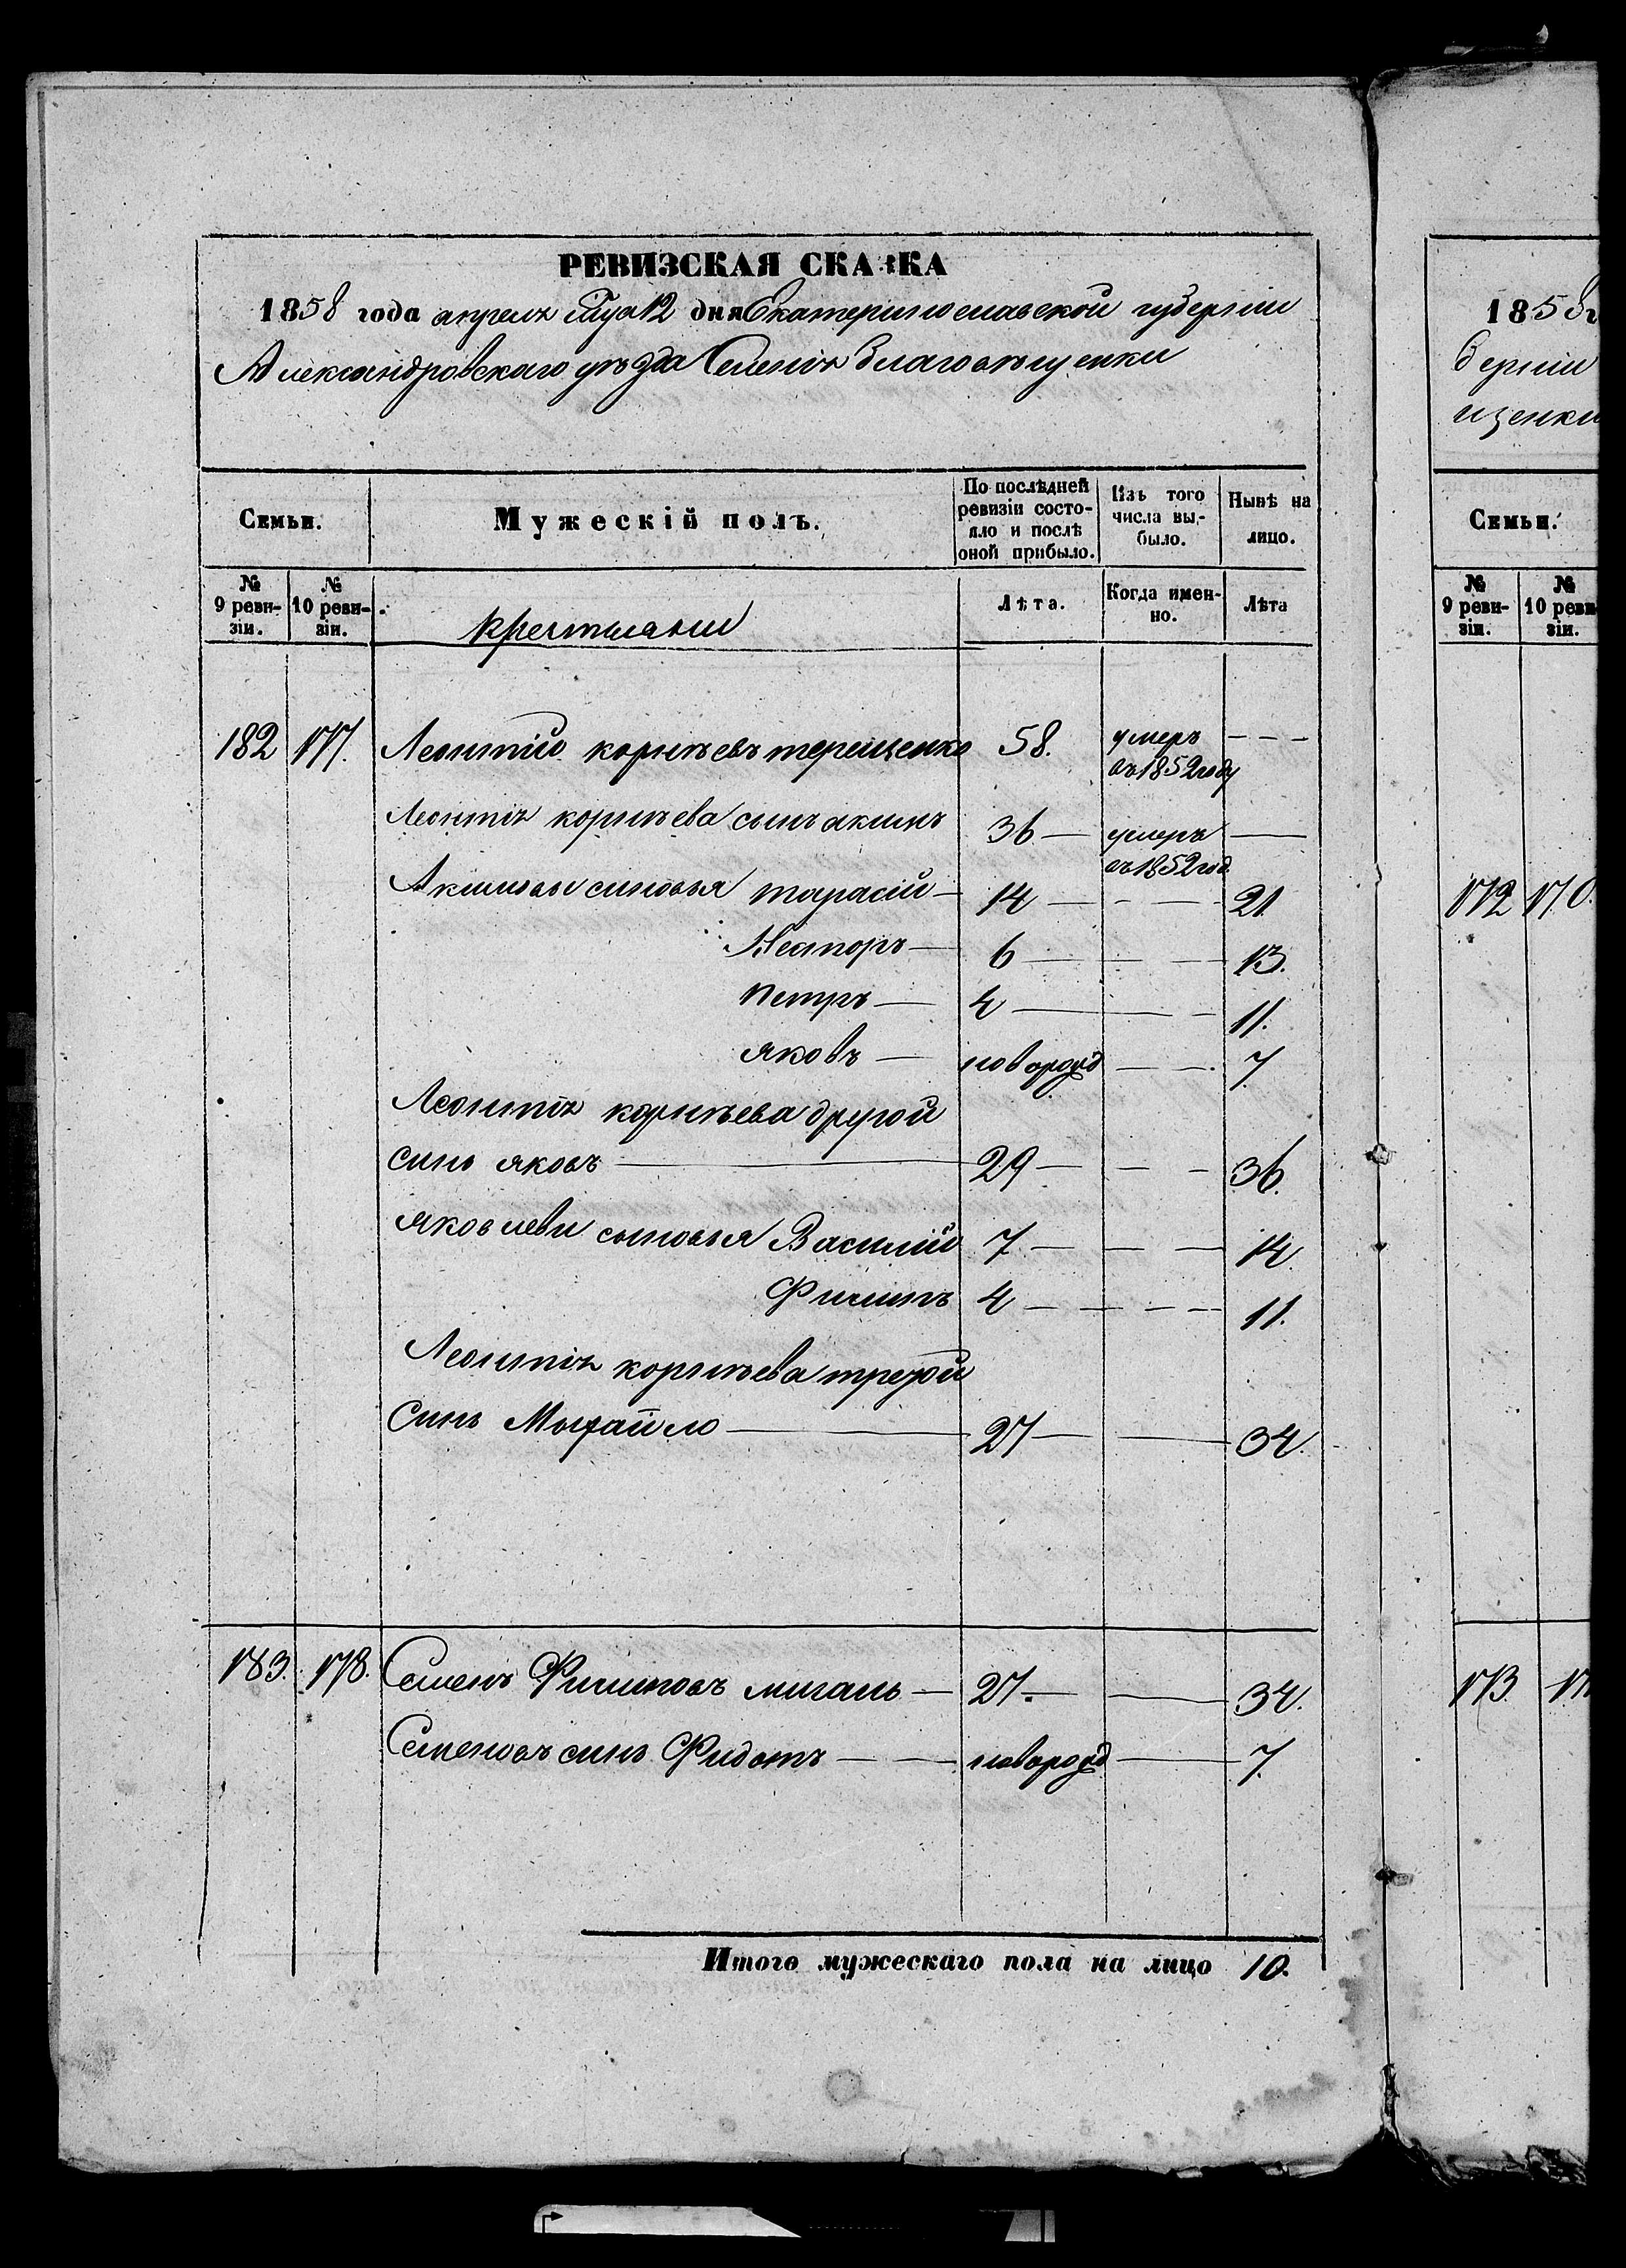 РЕВИЗСКАЯ СКАЗКА
1858 года апреля 12 дня Екатеринославской губернiи
Александровскаго уѣзда Селенiя благовѣщенки
Семьи. Мужескiй полъ. По послѣдней ревизiи состояло и послѣ оной прибыло. Изъ того числа выбыло. Нынѣ на лицо.
№ 9 ревизiи. № 10 ревизiи. крестьяни Лѣта. Когда именно. Лѣта
182 177. Леонтiй корнѣевъ терещенко 58. умеръ въ 1852 году - - -
Леонтiя корнѣева сынъ акимъ 36 — умеръ въ 1852 год —
Акимовы синовья тарасiй — 14 — - — 21.
Несторъ — 6 — — 13.
Петръ — 4 — - 11.
яковъ — новорожд — - 7
Леонтiя корнѣева другой
синъ яковъ — 29 — — - 36.
яковлеви сыновья Василiй 7. — — — 14.
Филипъ 4 — — - — 11.
Леонтiя корнѣева третой
Синъ Мыхайло — 27 — — 34.
183. 178. Семенъ Филиповъ мигаль — 27. — — 34.
Семеновъ синъ Фидотъ — — новорожд — 7.
Итого мужескаго пола на лицо 10.
1858 г
бернiи
щенки
Семьи.
№ 9 ревизiи. № 10 реви зiи.
172 170.
173. 17